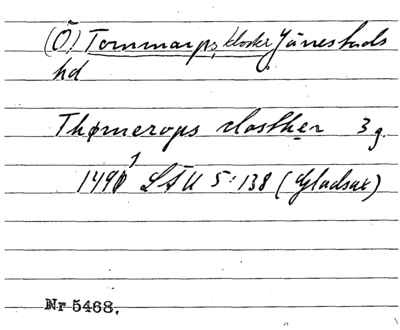 (Ö) Tommarps kloster Järrestads
hd
Thømerops closther 3 g.
1491 LÄU 5:138 (Gladsax)
Nr 5468.